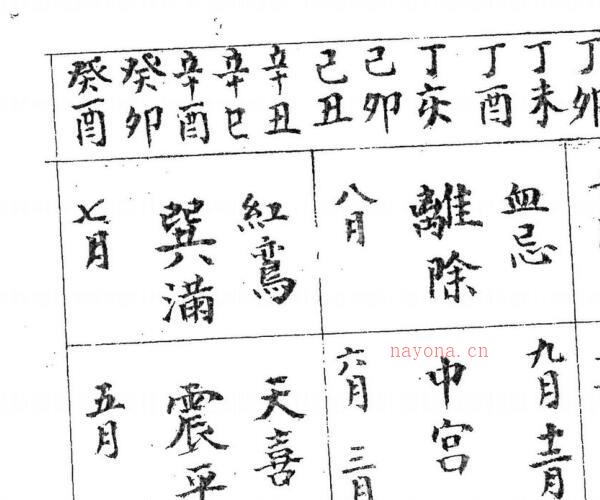 丁卯
丁未
丁酉
丁亥
己卯
己丑
辛丑
辛巳
辛酉
癸卯
癸酉
血忌
離除
八月
紅鸞
巽滿
七月
九月 十二月
中宮
六月 三月
天喜
震平
五月
nayona.cn